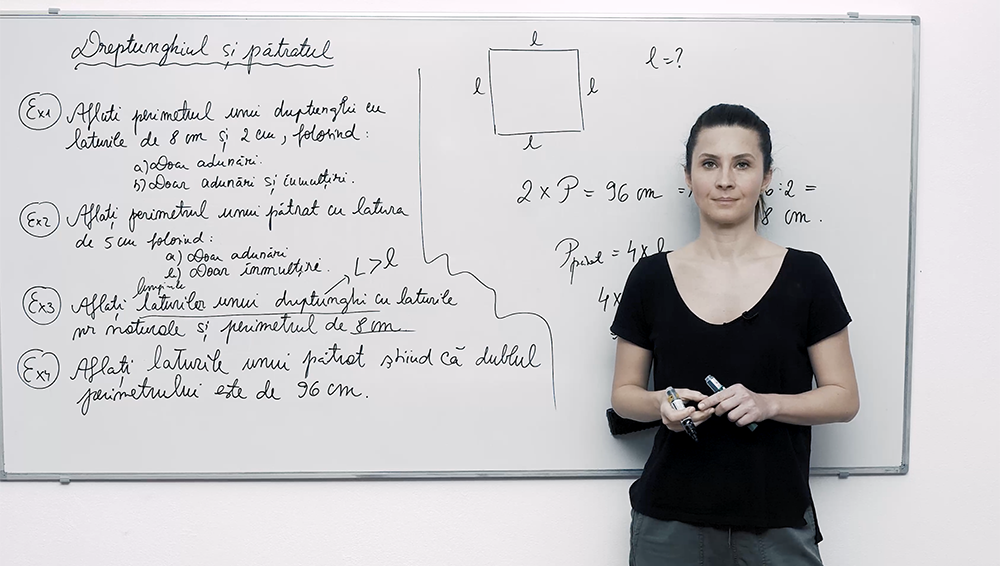 Dreptunghiul și pătratul
Ex1 Aflați perimetrul unui dreptunghi cu
laturile de 8 cm și 2 cm, folosind:
a) Doar adunări.
b) Doar adunări și înmulțiri.
Ex2 Aflați perimetrul unui pătrat cu latura
de 5 cm folosind:
a) Doar adunări
b) Doar înmulțire.
L > l
Ex3 Aflați laturilor unui dreptunghi cu laturile
nr naturale și perimetrul de 8 cm
Ex4 Aflați laturile unui pătrat știind că dublul
perimetrului este de 96 cm.
l
l
l
l
l = ?
2 x P = 96 cm
6 : 2 =
8 cm.
P pătrat = 4 x l
4 x